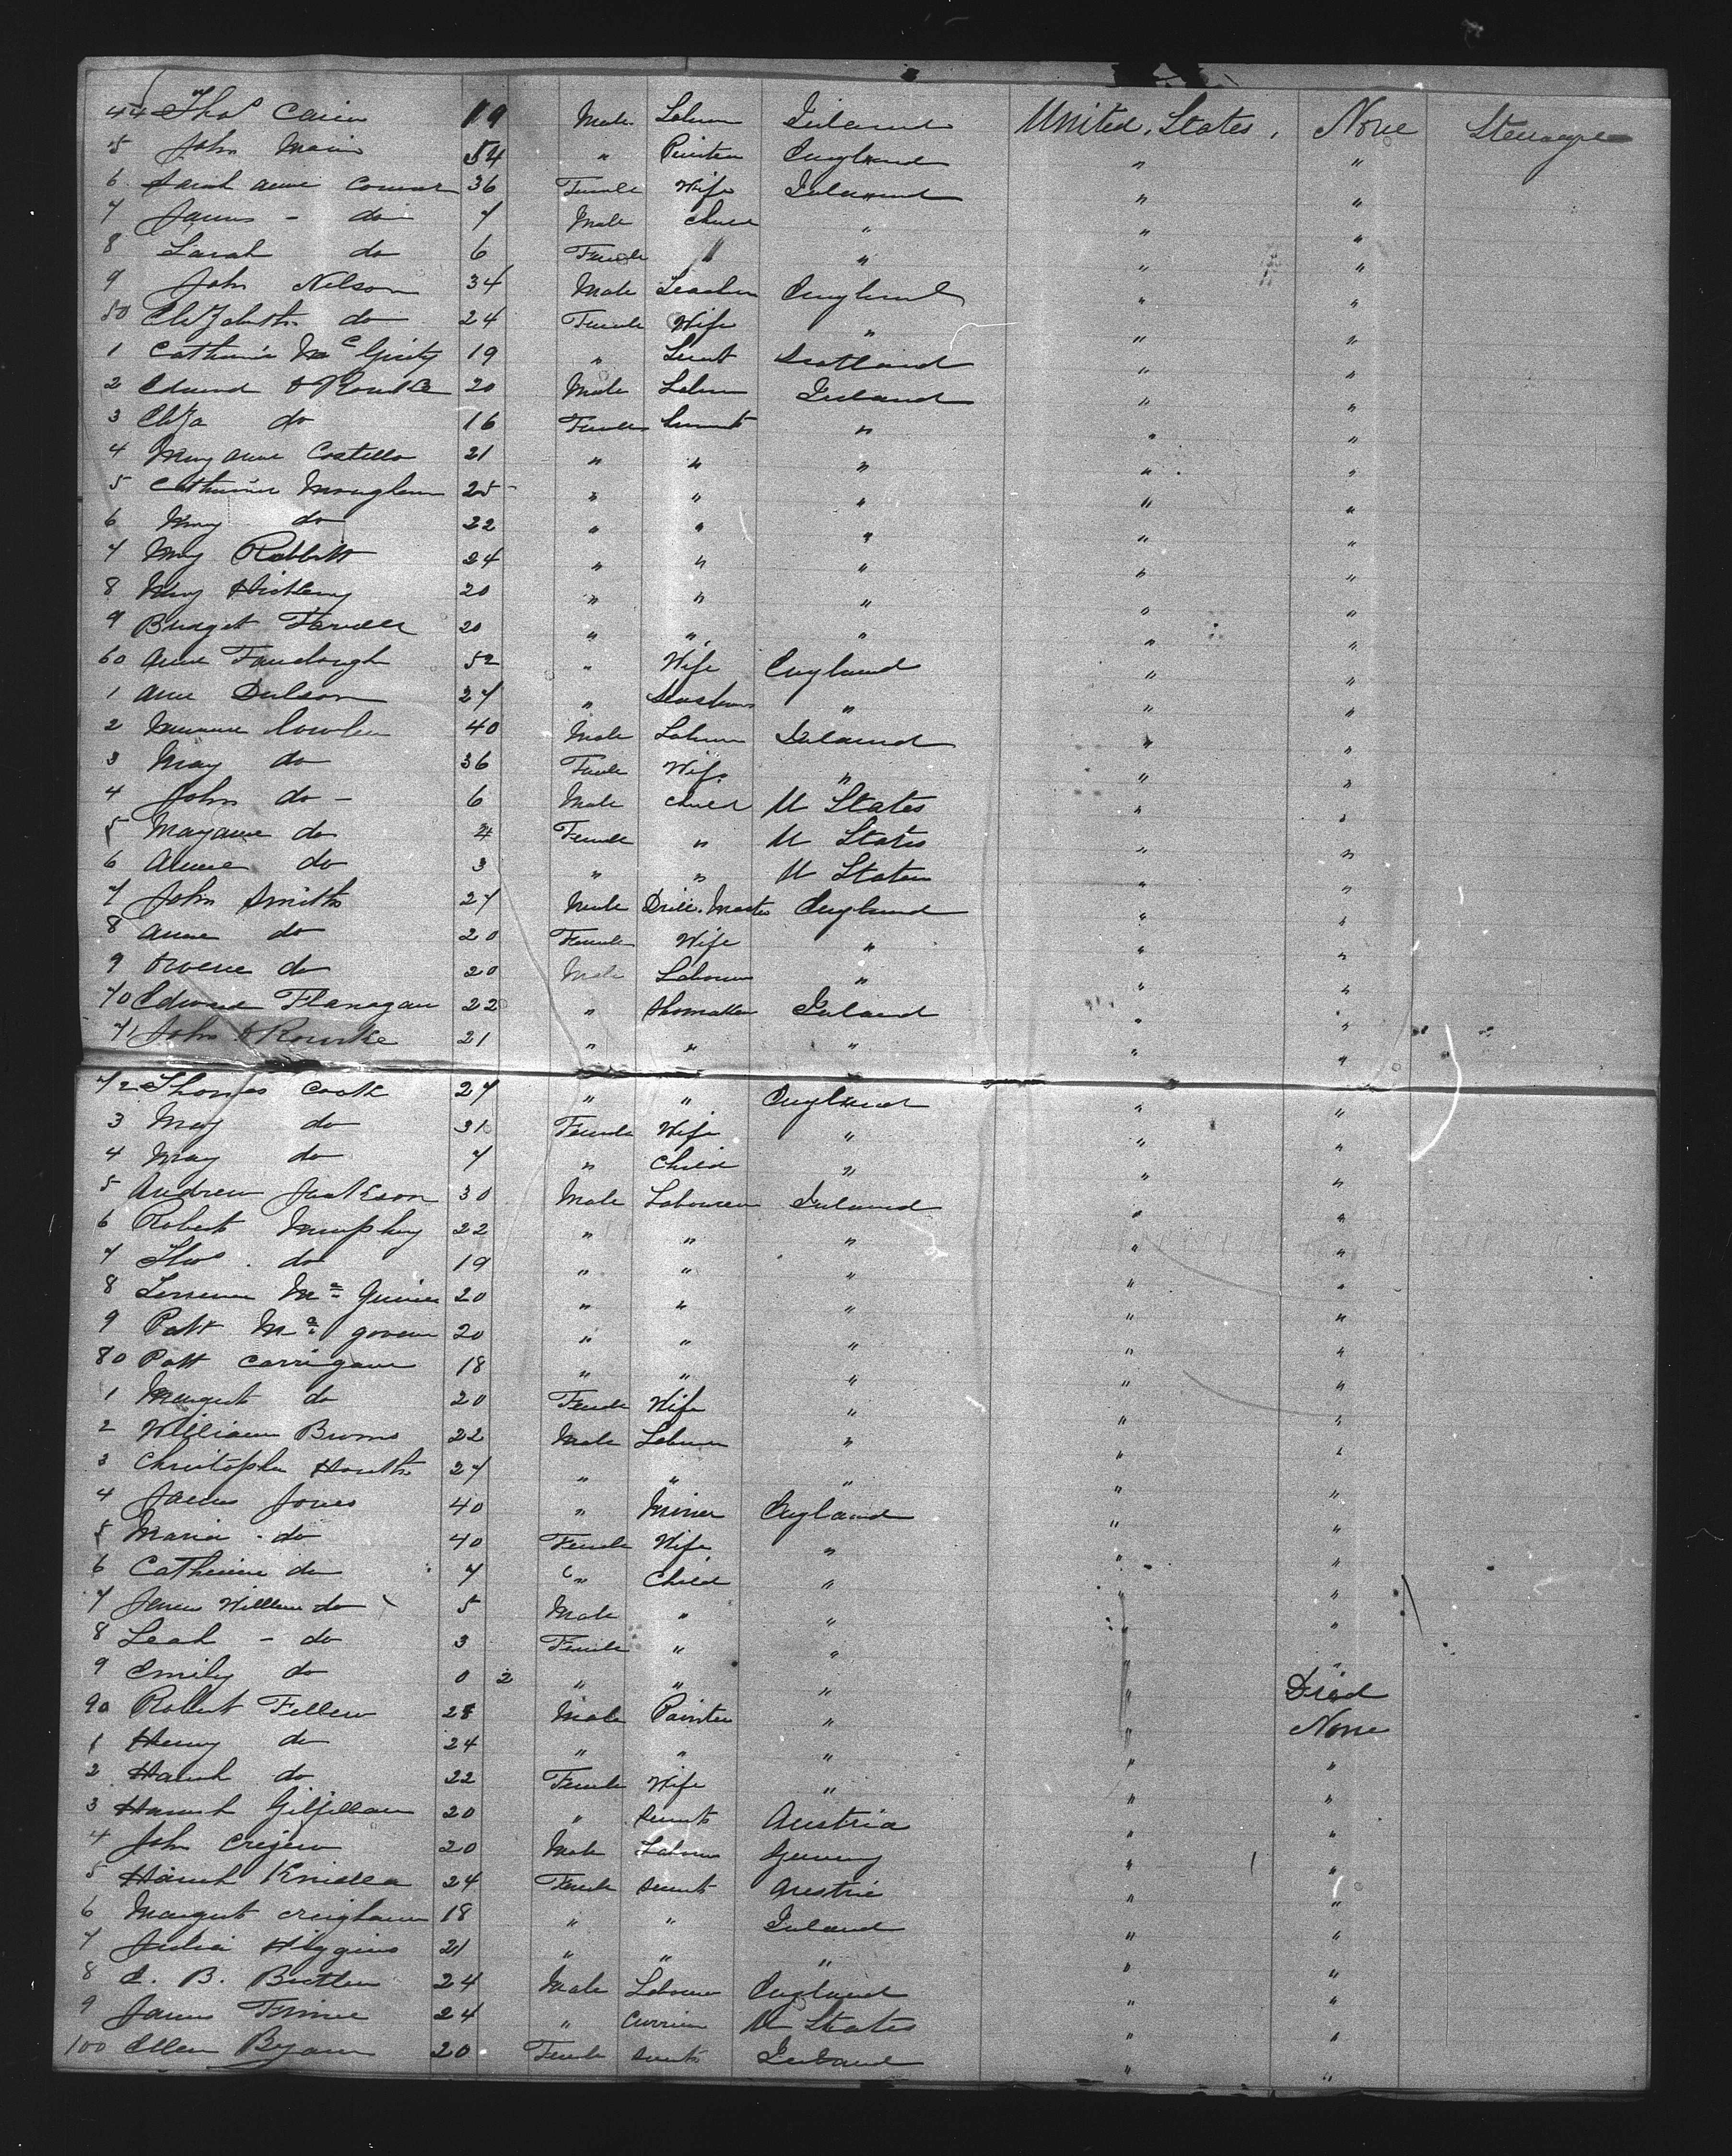 44 Thos 19 Male Ireland United States, None Steerage
5 John 54 " England " "
6 Sarah Anne 36 Female Wife Ireland " "
7 James - do 7 Male Child " " "
8 Sarah do 6 Female " " " "
9 John Nelson 34 Male England " "
50 Elizabeth do 24 Female Wife " " "
1 Catherine Mc Ginity 19 " Servt Scotland " "
2 Edward O Rourke 20 Male Labour Ireland " "
3 Eliza do 16 Female Servnt " " "
4 Mary Anne Costello 21 " " " " "
5 Catherine 25 " " " " "
6 Mary do 22 " " " " "
7 Mary Rabbitt 24 " " " " "
8 Mary 20 " " " " "
9 Bridget Farrell 20 " " " " "
60 Anne Fairclough 52 " Wife England " "
1 Anne 27 " " " "
2 40 Male Labour Ireland " "
3 Mary do 36 Female Wife " " "
4 John do - 6 Male Child U States " "
5 Maryanne do 4 Female " U States " "
6 Annie do 3 " " U States " "
7 John Smith 27 Male Drill Master England " "
8 Anne do 20 Female Wife " " "
9 do 20 Male Labour " " "
70 Edward Flanagan 22 " Shomaker Ireland " "
71 John O Rourke 21 " " " " "
72 Thomas Cook 27 " " England " "
3 Mary do 31 Female Wife " " "
4 Mary do 7 " Child " " "
5 Andrew Jackson 30 Male Labourer Ireland " "
6 Robert Murphy 22 " " " " "
7 Thos. do 19 " " " " "
8 Mc 20 " " " " "
9 Patt Mc govern 20 " " " " "
80 Patt Carrigan 18 " " " " "
1 Margret do 20 Female Wife " " "
2 William Burns 22 Male Labour " " "
3 Christopher 27 " " " " "
4 James Jones 40 " Miner England " "
5 Maria - do 40 Female Wife " " "
6 Catherine do 7 " Child " " "
7 James William do 5 Male " " " "
8 Leah - do 3 Female " " " "
9 Emily do 0 2 " " " " Died
90 Robert 28 Male Painter " " None
1 Henry do 24 " " " " "
2 Hannah do 22 Female Wife " " "
3 Hannah Gilfillan 20 " Servnt Austria " "
4 John 20 Male Labour Germany " "
5 Hannah 24 Female Servnt Austria " "
6 Margret Creighan 18 " " Ireland " "
7 Julia Higgins 21 " " " " "
8 B. Butler 24 Male Labour England " "
9 James 24 " Currier U States " "
100 Ellen 20 Female Servnt Ireland " "